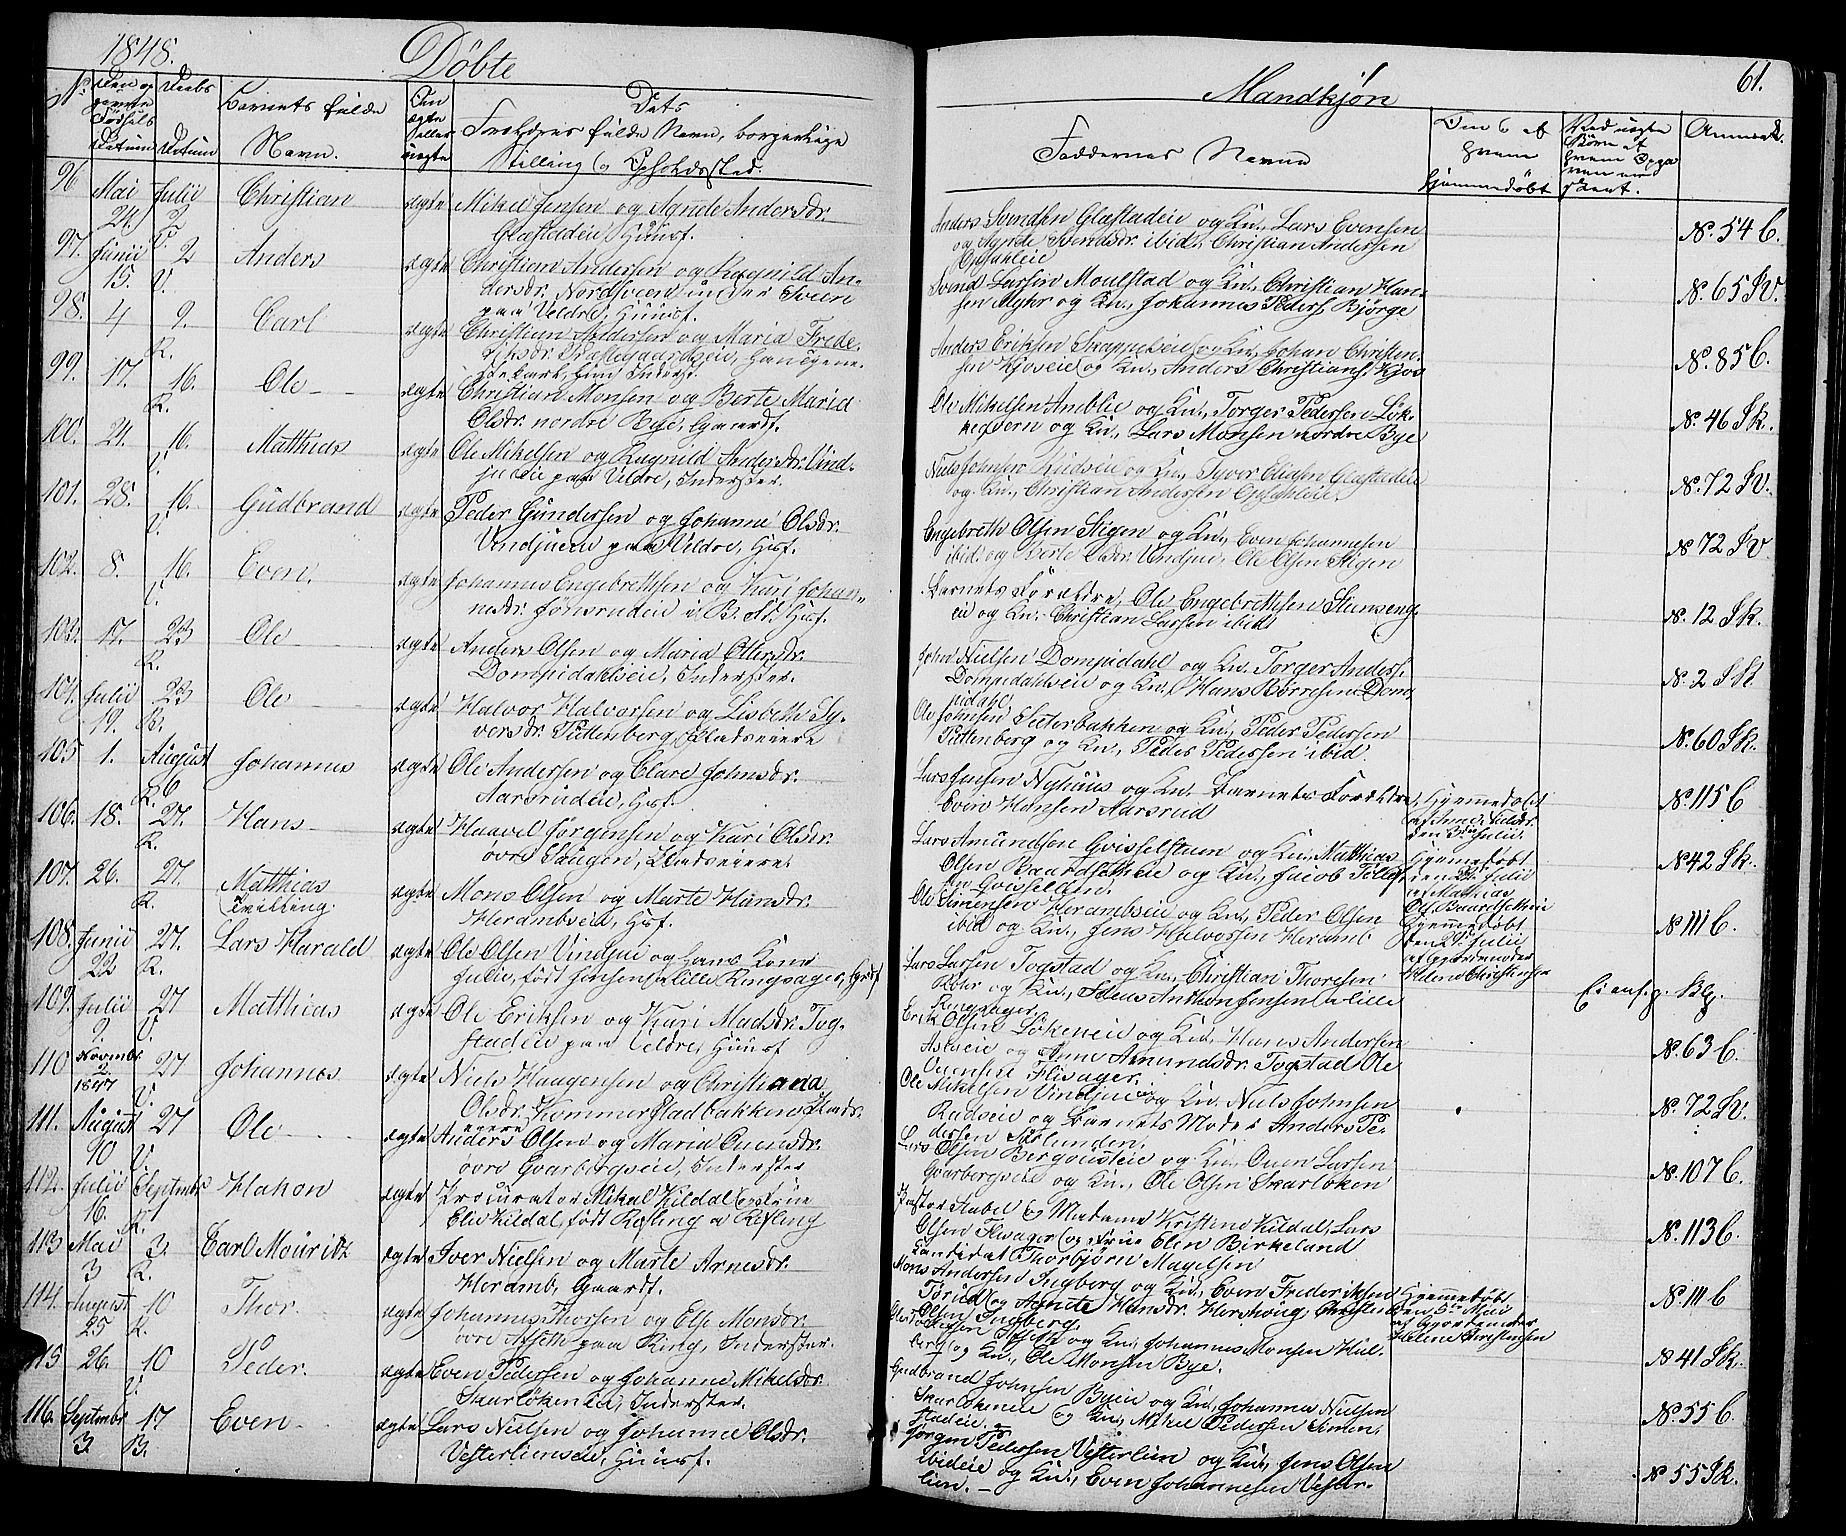 1848.
Döbte
Mandkjön
61.
No.
Döbs
Datum
Barnets fulde
Navn.
Om
ægte
eller
uægte
Dets
Forældres fulde Navn, borgerlige
Stilling og Opholdssted.
Faddernes Navne
hjemmedöbt
Anmærk.
96
Mai
24.
Julii
2
V.
Christian
ægte
Mikel Jensen og Agnete Andersdr.
Glæstadeie, Huusf.
Anders Svendsen Glæstadeie og Kn., Lars Evensen
og Agnete Svendsdr. ibid., Christian Andersen
Opsahleie
No. 54 C.
97.
Junii
15.
2
V.
Anders
ægte
Christian Andersen og Ragnild An-
dersdr. Nordsveen under Sveen
paa Veldre, Huusf.
Svend Larsen Moulstad og Kn., Christian Han-
sen Myhr og Kn., Johannes Peders. Bjørge
No. 65 Sv.
98.
4
9.
R.
Carl
ægte
Christian Andersen og Maria Frede-
riksdr. Præstegaardseie,
Anders Eriksen Skappelseie og Kn., Johan Christen-
sen Kjoseie og Kn., Anders Christians. Kjos
No. 85 C.
99.
17.
16.
R.
Ole
ægte
Christian Monsen og Berte Maria
Olsdr. nordre Bye, Gaardf.
Ole Mikelsen Amblie og Kn., Torger Pedersen Lök-
keqvern og Kn., Lars Monsen nordre Bye
No. 46 Sk.
100.
21.
16.
V.
Matthias
ægte
Ole Mikelsen og Ragnild Andersdr. Vind-
jueie paa Veldre, Inderster.
Niels Johnsen Rudseie og Kn., Syver Eliasen Glæstadeie
og Kn., Christian Andersen Opsahleie
No. 72 Sv.
101.
28.
16.
V.
Gudbrand
ægte
Peder Gundersen og Johanne Olsdr.
Vindjueie paa Veldre, Husf.
Engebreth Olsen Stigen og Kn., Even Johannesen
ibid. og Berte Olsdr. Vindjuei, Ole Olsen Stigen
No. 72 Sv
102.
8.
16.
V.
Even.
ægte
Johannes Engebrethsen og Kari Johan-
nesdr. Jonsrudeie i B. Sk. Husf.
Barnets Forældre, Ole Engebrethsen Stenseng-
eie og Kn., Christian Larsen ibid.
No. 12 Sk.
103.
17.
23
R.
Ole
ægte
Anders Olsen og Maria Olsdr.
Dompidahlseie, Inderster.
John Nielsen Dompidahl og Kn., Torger Anders.
Dompidahlseie og Kn., Hans Börresen Dom-
pidahl
No. 2 Sk
104.
Julii
19.
23
R.
Ole
ægte
Halvor Halvorsen og Lisbeth Sy-
versdr. Pettenberg, Pladseiere
Ole Johnsen Sæterbakken og Kn., Peder Pedersen
Pettenberg og Kn., Peder Pedersen ibid.
No. 60 Sk.
105
1.
August
6
R.
Johannes
ægte
Ole Andersen og Clare Johnsdr.
Aarsrudeie, Husf.
Lars Jensen Nyhuus og Kn., Barnets Forældre,
Even Hansen Aarsrud
Hjemmedöbt
den 3die Julii.
No. 115 C
106.
18.
27.
R.
Hans
ægte
Haavel Jörgensen og Kari Olsdr.
övre Saugen, Pladseiere.
Lars Amundsen Gvisselstuen og Kn., Matthias
Olsen Baardsetheie og Kn., Jacob Tollef-
sen Gvisselstuen.
Hjemmedöbt
Julii
af Mathias
Ols. Baardsetheie
No. 42 Sk.
107.
26.
27.
R.
Matthias
Tvilling.
ægte
Mons Olsen og Marte Hansdr.
Herambseie, Husf.
Ole Simensen Herambseie og Kn., Peder Olsen
ibid og Kn., Jens Halvorsen Heramb
Hjemmedöbt
Julii
af Gjordemoder
Helene Christensen
No. 111 C.
108.
Junii
22
27.
R.
Lars Harald
ægte
Ole Olsen Vindjuei og Hans Kone
Julie, født Jensen fra lille Ringsager, Husf
Lars Larsen Togstad og Kn., Christian Thoresen
Rohr og Kn., Anthon Jensen lille
Ringsager
Ei anf. p. Blg.
109.
Julii
9.
27
V.
Matthias
ægte
Ole Eriksen og Kari Madsdr. Tog-
stadeie paa Veldre, Huusf
Erik Olsen Lökeneie og Kn., Hans Andersen
Askseie og Anne Amundsdr. Togstad Ole
Ouensen Flisager.
No. 63 C.
110
Novmbr.
2
1847
27
V.
Johannes
ægte
Niels Haagensen og Christiana
Olsdr. Kommerstadbakken, Plads-
eiere
Ole Mikelsen Vindjueie og Kn., Niels Johnsen
Rudseie og Barnets Moder Anders Pe-
dersen Sörlunden.
No. 72 Sv.
111.
August
90
27
V.
Ole
ægte
Anders Olsen og Maria Ouensdr.
övre Gvarbergseie, Inderster
Lars Olsen Bergouseie og Kn., Ouen Larsen
Gvarbergseie og Kn., Ole Olsen Skarlöken
No. 107 C.
112.
Julii
16.
Septmbr.
3
R.
Hakon
ægte
Procurator Mikal Kildal og Frue
Elie Kildal, født Refling a Refling
Pastor Aabel og Madame Kristine Kildal, Lars
Olsen Flisager og Frue Elen Birkeland
Candidat Thorbjörn Magelsen
No. 113 C.
113
Mai
3
3.
R.
Carl Mouritz
ægte
Iver Nielsen og Marte Arnesdr.
Heramb, Gaardf.
Mons Andersen Ingberg og Kn., Even Frederiksen
Torud og Agnete Hansdr. Hershoug, Christen
Olsen Ingberg.
Hjemmedöbt
den 5te Mai
af Gjordemoder
Helene Christensen
No. 111 C
114.
August
25
10
R.
Thor.
ægte
Johannes Thorsen og Else Monsdr.
övre Alseth paa Ring, Inderster.
og Kn., Johannes Monsen Hul-
berg og Kn., Ole Monsen Bye.
No. 41 Sk.
115
26.
10
V.
Peder.
ægte
Even Pedersen og Johanne Mikelsdr.
Skarlökeneie, Inderster.
Gudbrand Johnsen Byeie og Kn., Johannes Nielsen
Skarlökeneie og Kn., Mikel Pedersen Simen-
stadeie.
No. 55 C.
116.
Septmbr
3.
17
R.
Even
ægte
Lars Nielsen og Johanne Olsdr.
Vesterlienseie, Huusf.
Jörgen Pedersen Vesterlien og Kn., Jens Olsen
ibideie og Kn., Even Johannesen Vester-
lien.
No. 55 Sk.